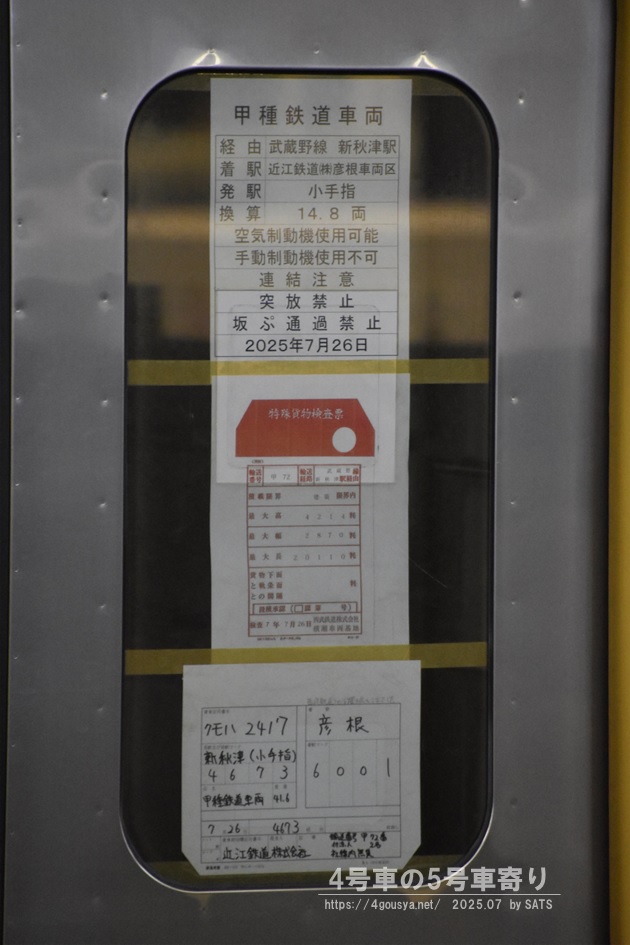 甲種鉄道車両
経由 武蔵野線 新秋津駅
着駅 近江鉄道㈱彦根車両区
発駅 小手指
換算 14.8 両
空気制動機使用可能
手動制動機使用不可
連結注意
突放禁止
坂ぷ通過禁止
2025年7月26日
特殊貨物検査票
輸送番号 甲 72 輸送経路
最大高 4214 粍
最大幅 2870 粍
最大長 20110 粍
7年 7月26日 西武鉄道株式会社
クモハ 2417 彦根
新秋津(小手指)
4673 6001
甲種鉄道車両 41.6
7 26 4673
近江鉄道株式会社
4号車の5号車寄り
https://4gousya.net/ 2025.07 by SATS